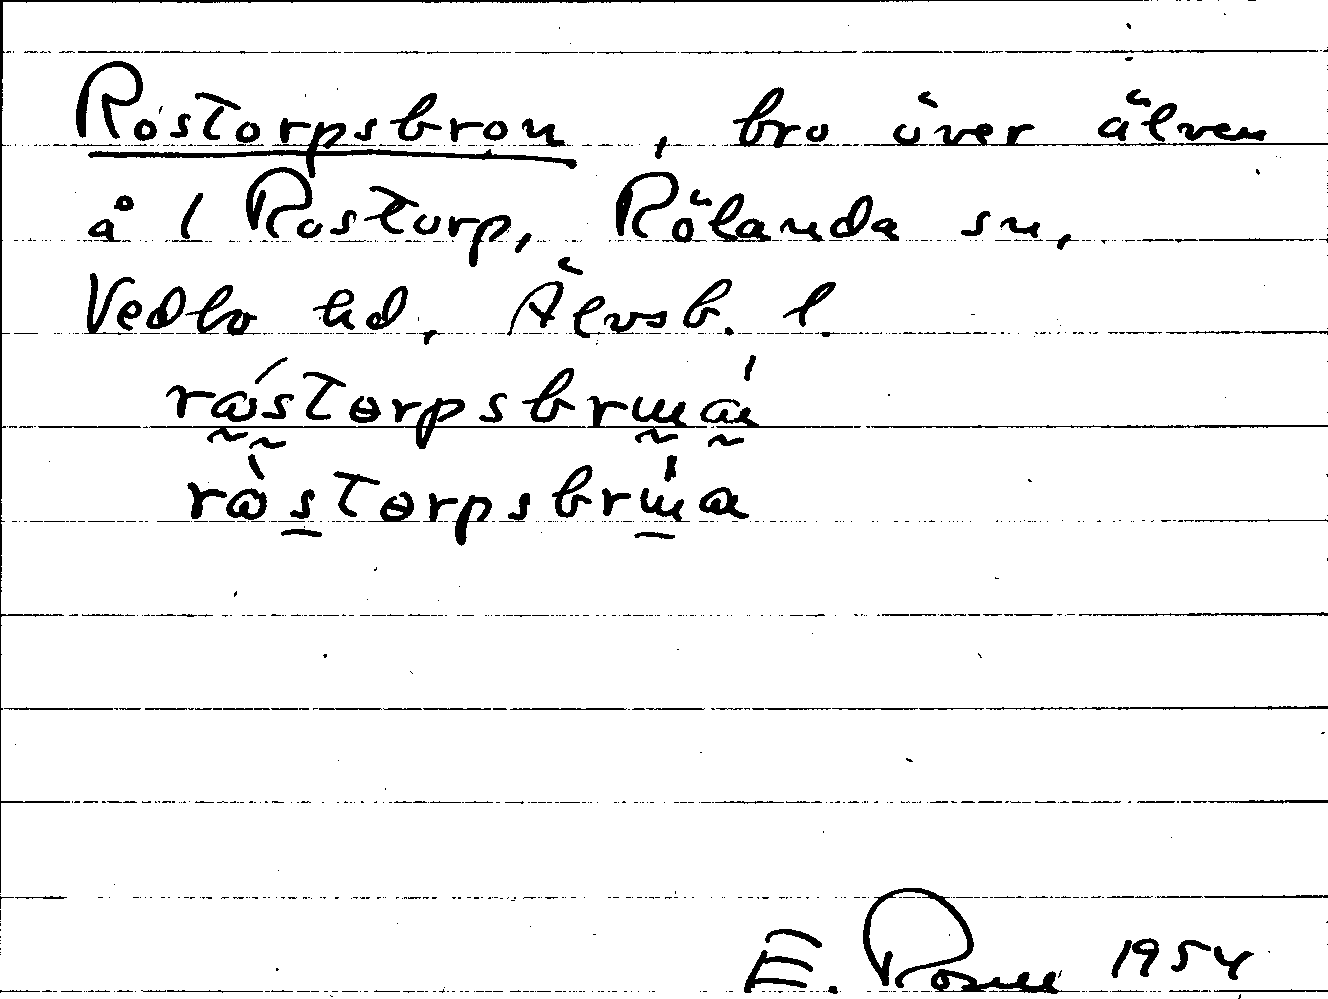 Rostorpsbron, bro över älven
å 1 Rostorp, Rölanda sn,
Vedbo hd, Älvsb. l.
råstorpsbrɯa
råstorpsbrɯa
E. Rosell 1954